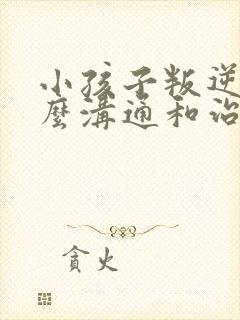 小孩子叛逆
麼溝通和治
貪火